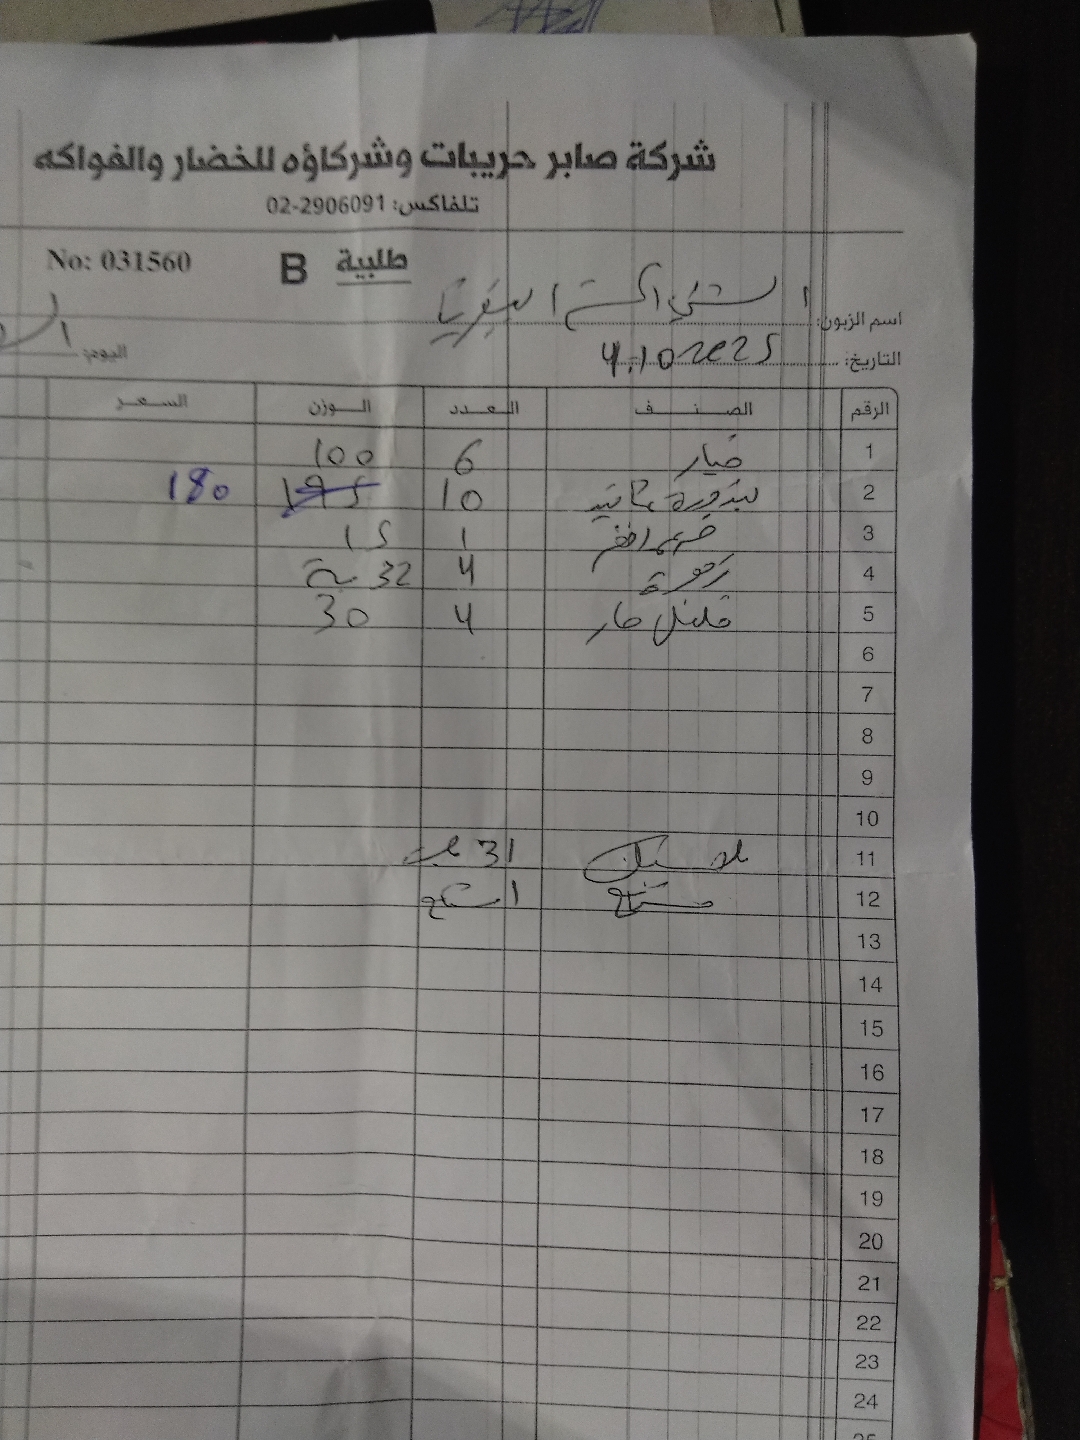 شركة صابر حريبات وشركاؤه للخضار والفواكه
تلفاكس: 02-2906091
No: 031560 B طلبية
اسم الزبون:
اليوم:
التاريخ: 4.10 2025
الرقم الصنف العدد الوزن السعر
1 خيار 6 100
2 بندورة 10 195 180
3 1 15
4 4 32
5 فلفل حار 4 30
6
7
8
9
10
11 31
12 مشتاح 1 مشتاح
13
14
15
16
17
18
19
20
21
22
23
24
25